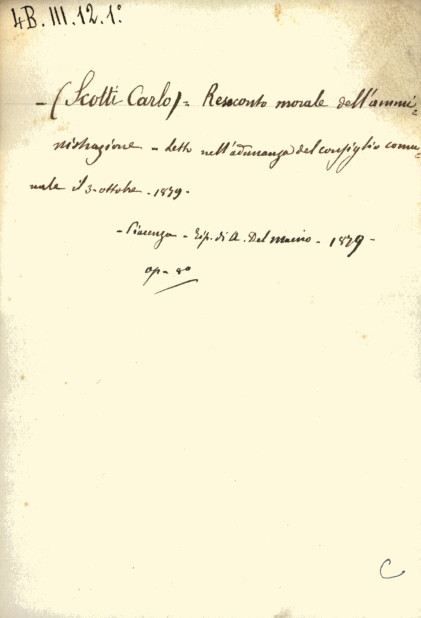 4B.III.12.1°
- (Scotti Carlo) = Resoconto morale dell'ammi=
nistrazione - letto nell'adunanza del consiglio comu=
nale il 3 ottobre - 1879 -
- Piacenza - Tip. di A. Del Maino - 1879 -
op - 8°
C